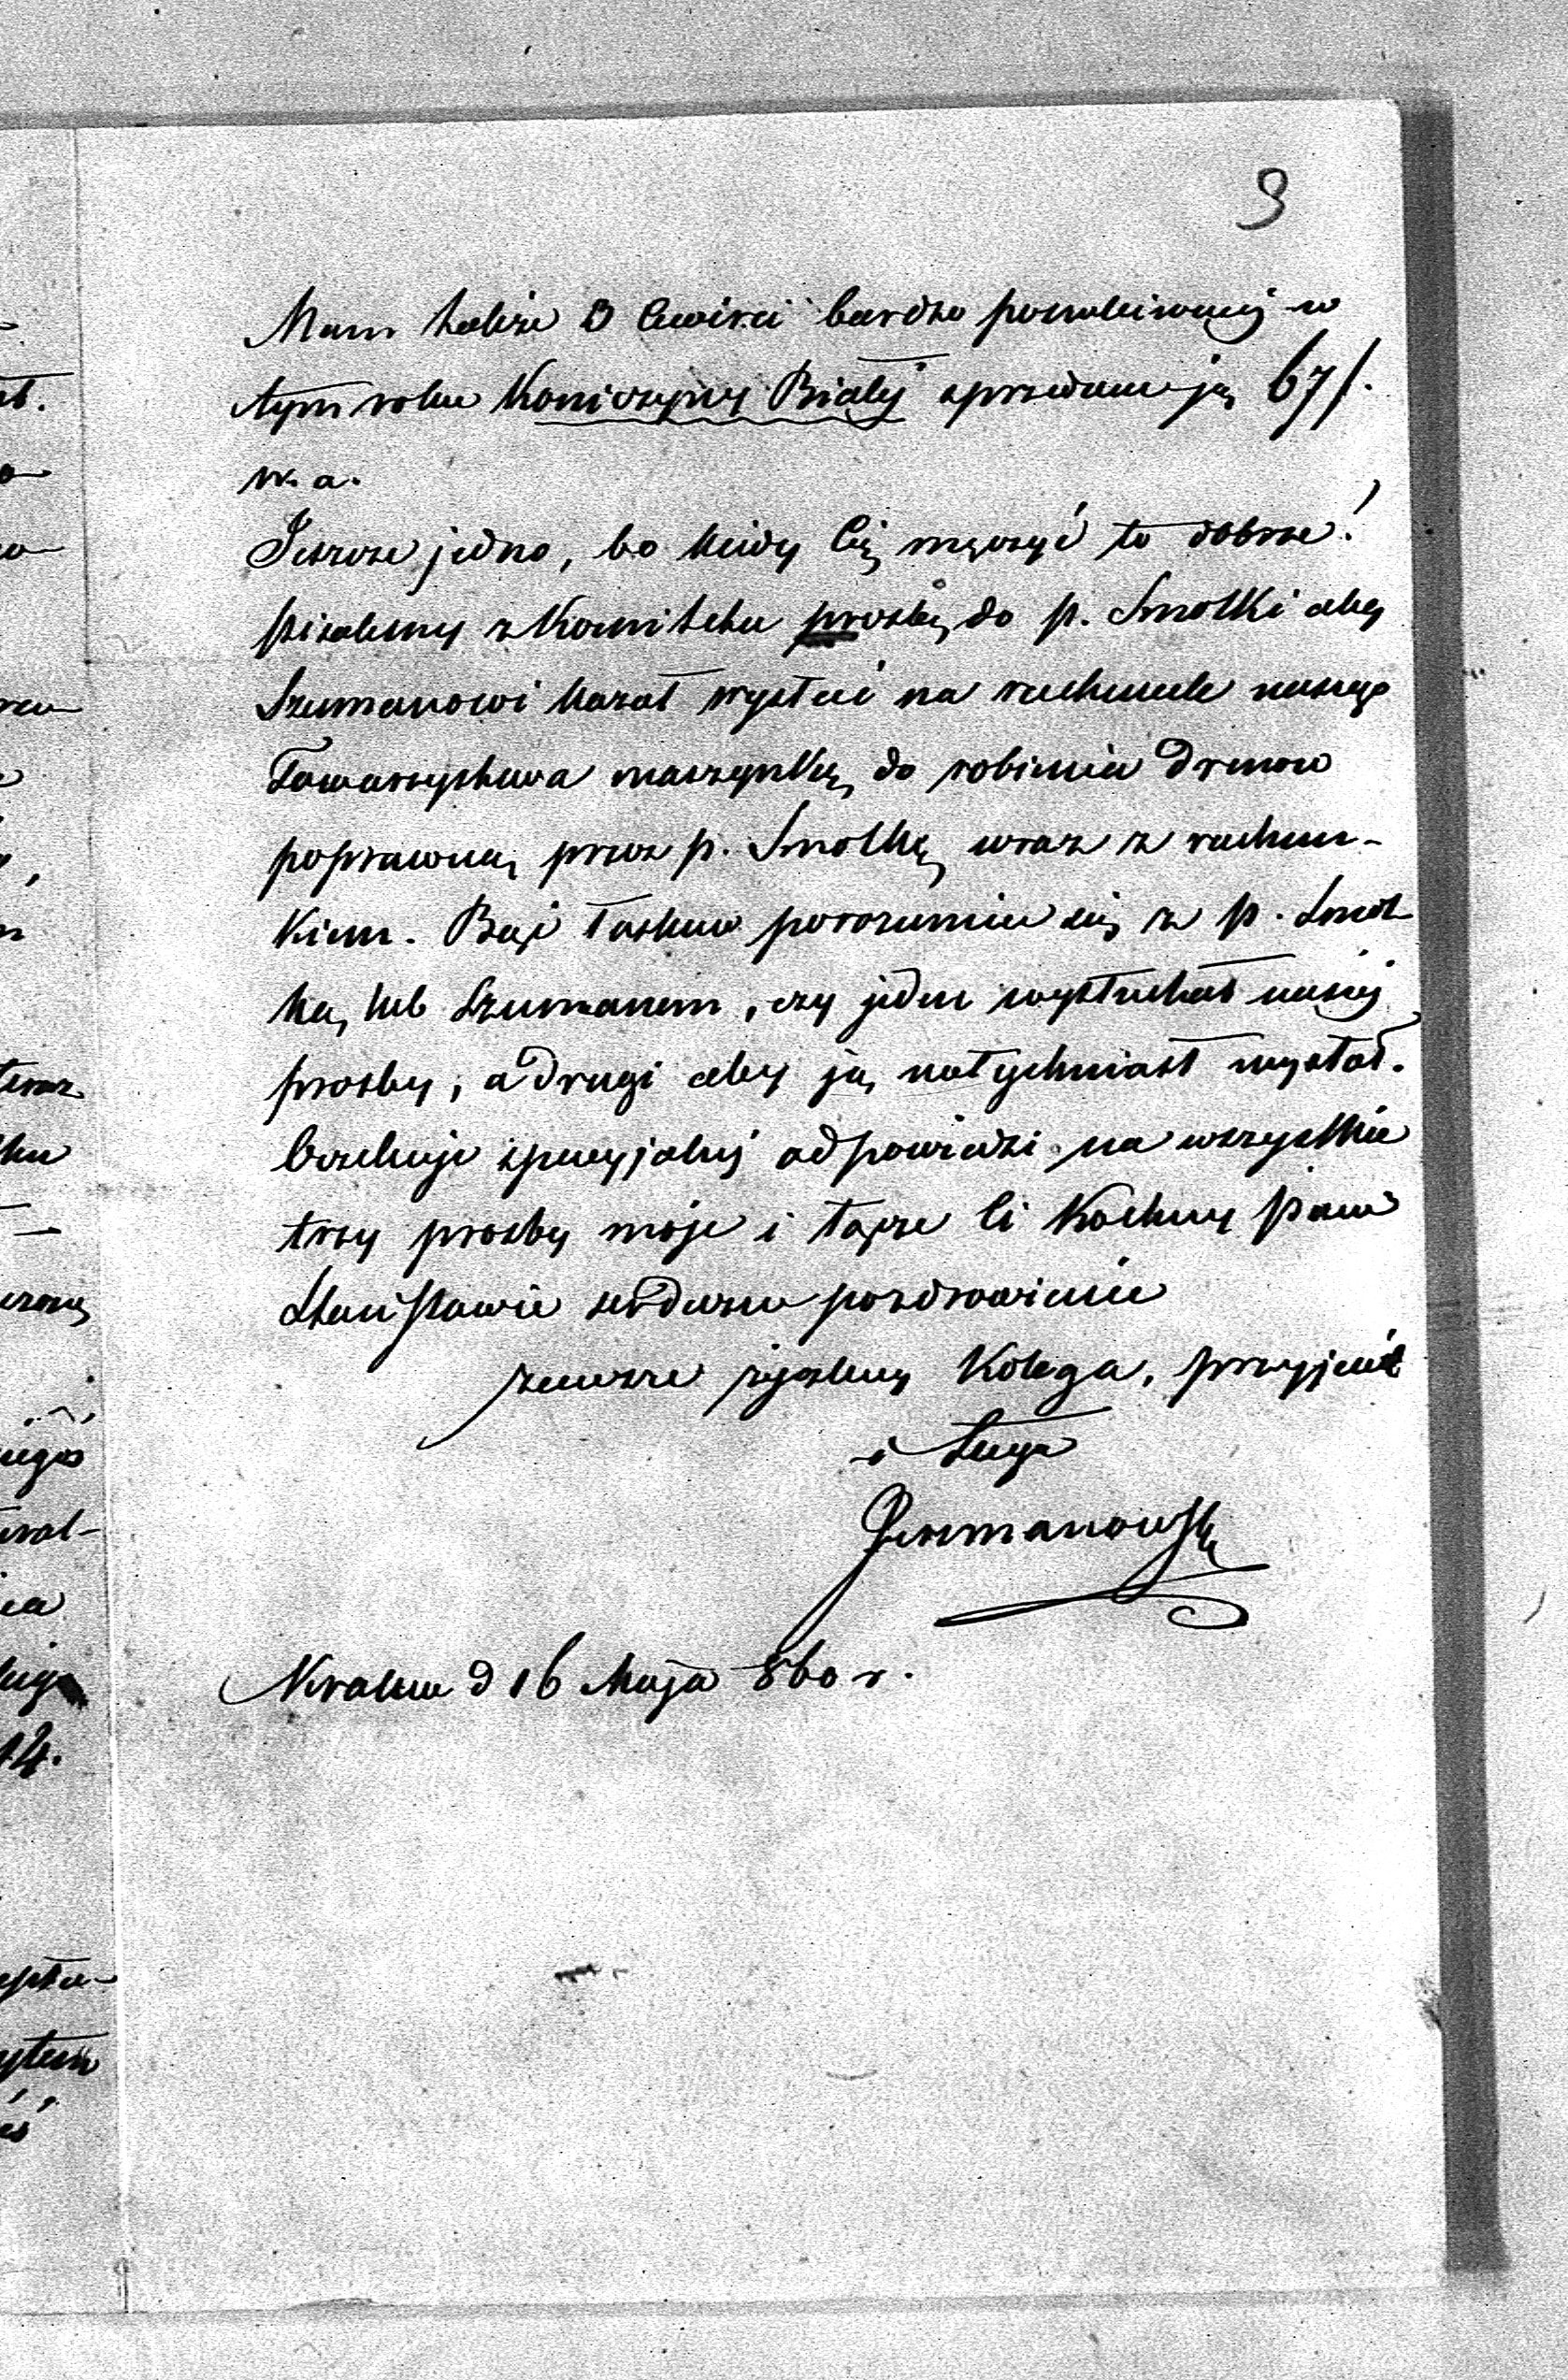 9
Mam także 3 ćwierci bardzo poszukiwanej w
tym roku Koniczyny Białej sprzedam ją 67 f.
w. a.
Jeszcze jedno, bo kiedy Cię męczyć to dobrze!
pisaliśmy z Komitetu prośbę do p. Smolki aby
Szumanowi kazał wysłać na rachunek naszego
Towarzystwa maszynkę do robienia drenów
poprawną przez p. Smolkę wraz z rachun-
kiem. Bądź łaskaw porozumieć się z p. Smol
ką lub Szumanem, czy jeden wysłuchał naszej
prośby, a drugi aby ją natychmiast wysłał.
Oczekuję specyjalnej odpowiedzi na wszystkie
trzy prośby moje i łączę Ci Kochany Panie
Stanisławie serdeczne pozdrowienie
zawsze życzliwy Kolega, przyjaciel
i sługa
Kraków d 16 Maja 860 r.